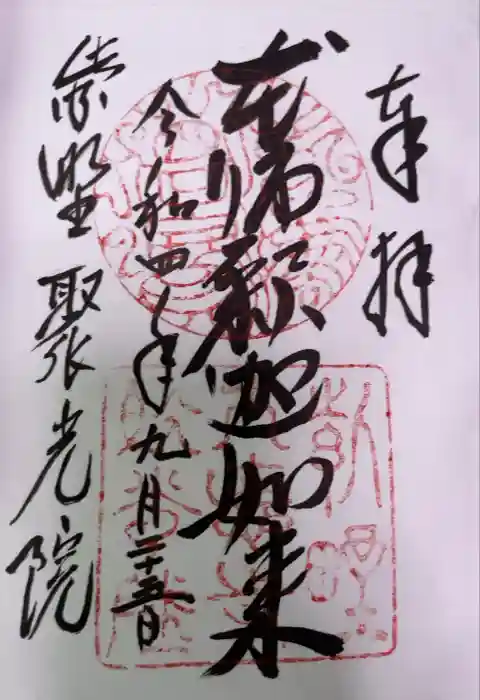 奉拝
本師釈迦如来
令和四年九月二十五日
紫野 聚光院